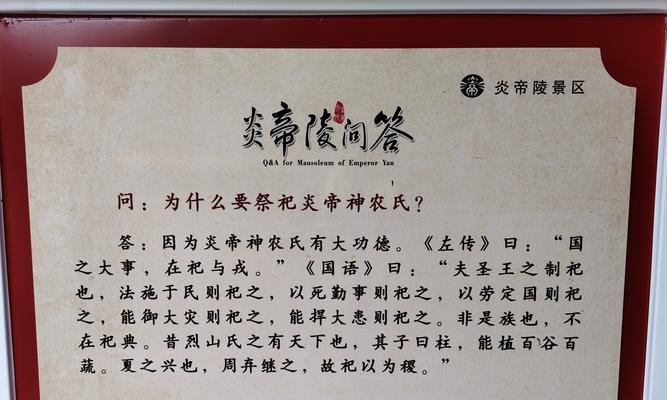 炎帝陵景区
炎帝陵问答
Q&A for Mausoleum of Emperor Yan
问：为什么要祭祀炎帝神农氏？
答：因为炎帝神农氏有大功德。《左传》曰：“国
之大事，在祀与戎。”《国语》曰：“夫圣王之制祀
也，法施于民则祀之，以死勤事则祀之，以劳定国则祀
之，能御大灾则祀之，能捍大患则祀之。非是族也，不
在祀典。昔烈山氏之有天下也，其子曰柱，能植百谷百
蔬。夏之兴也，周弃继之，故祀以为稷。”